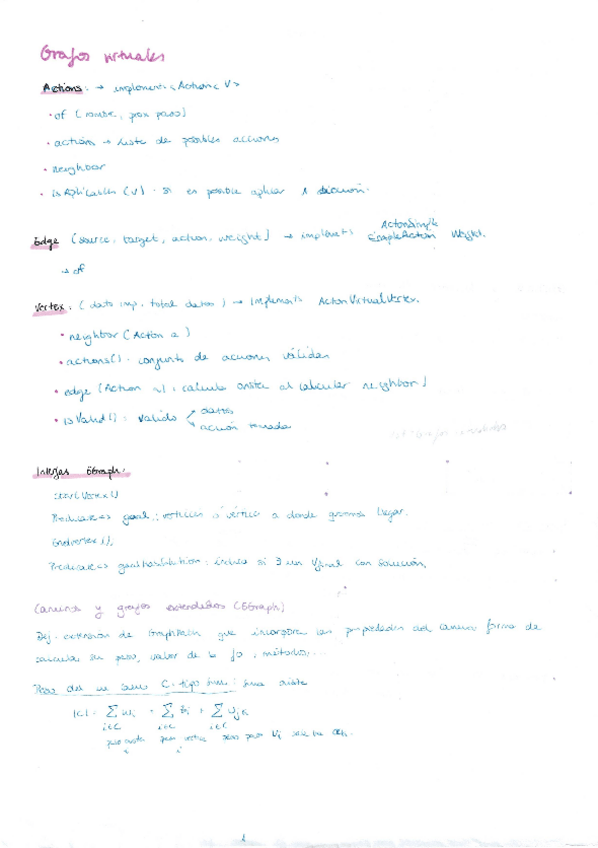 Grafos virtuales
Actions: → implements <Action<V>
· of (nombre, prox paso)
· actions → lista de posibles acciones
· neighbor
· isAplicables (V) · si es posible aplicar
Edge (source, target, action, weight) → implements ActionSimple SimpleAction Weight.
→ of
Vertex: (dato imp, total datos) → Implements ActionVirtualVertex.
· neighbor (Action a)
· actions() · conjunto de acciones válidas
· edge (Action a): calcula arista al calcular neighbor)
· isValid(): válido datos
acción tomada
Interfas EGraph:
startVertex()
Predicate<> goal: vértices o vértice a donde queremos llegar.
endVertex();
Predicate<> goalHasSolution: indica si ∃ un Vfinal con solución.
Caminos y grafos extendidos (EGraph)
extensión de GraphPath que incorpora las propiedades del camino forma de
calcular su peso, valor de la métodos, ...
Peso de un camino C · tipo Sum: Suma arista
|C| =
peso arista peso vertice peso paso
1